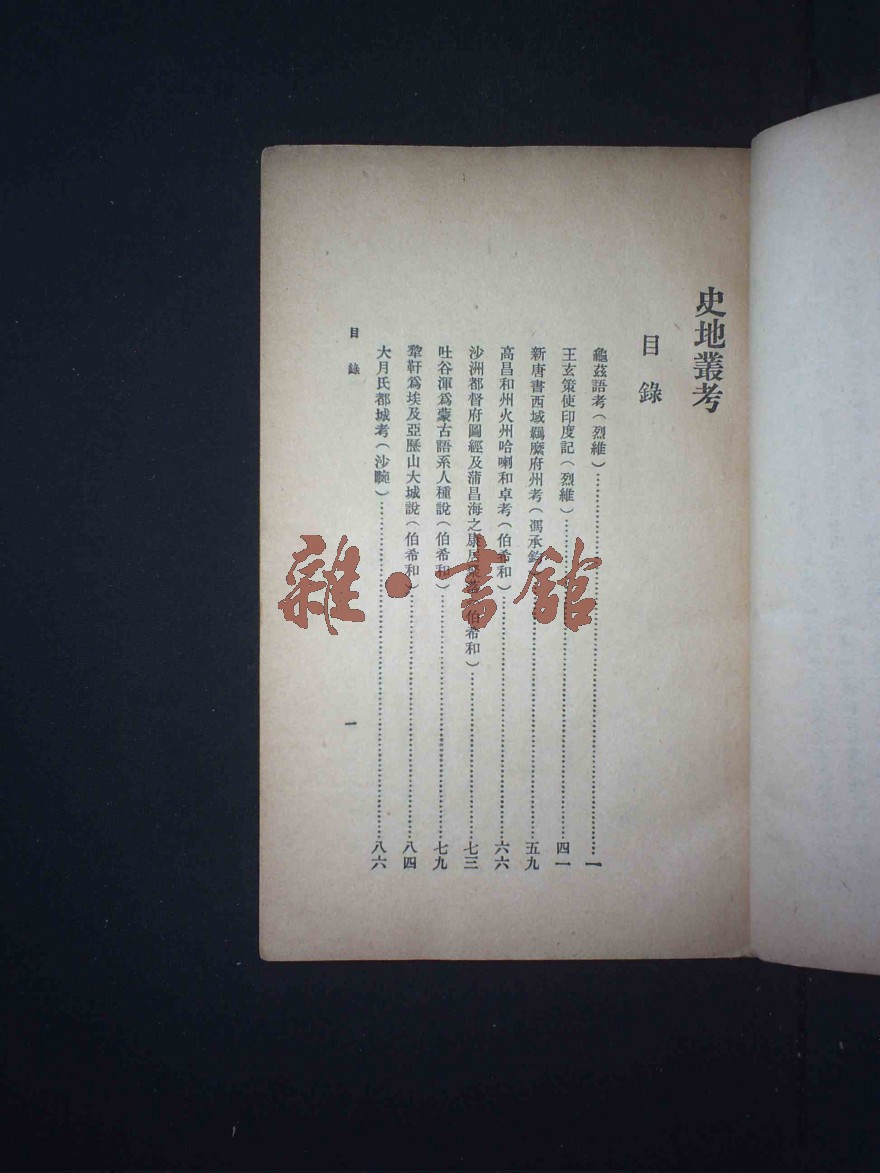 史地叢考
目錄
龜茲語考(烈維)……一
王玄策使印度記(烈維)……四一
新唐書西域羈縻府州考(馮承鈞……五九
高昌和州火州哈喇和卓考(伯希和)……六六
沙洲都督府圖經及蒲昌海之康居 伯希和)……七三
吐谷渾爲蒙古語系人種說(伯希和)……七九
犂靬爲埃及亞歷山大城說(伯希和)……八四
大月氏都城考(沙畹)……八六
目錄
一
雜·書館